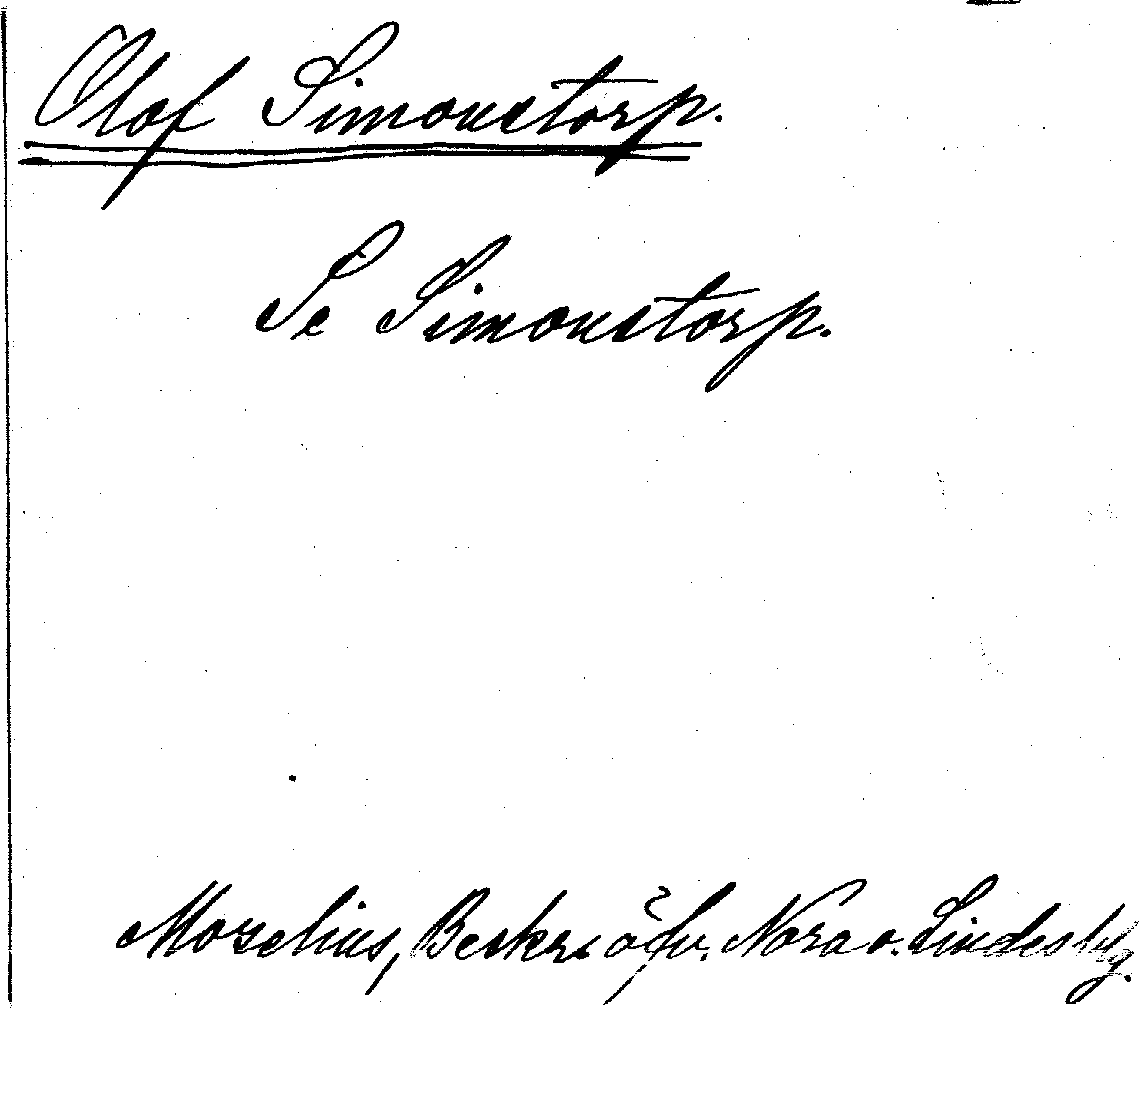 Olof Simonstorp.
Se Simonstorp.
Morelius, Beskr. öfv. Nora o. Lindesbg.